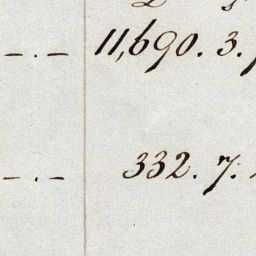 — . — 11,690. 3.
— . — 332. 7.